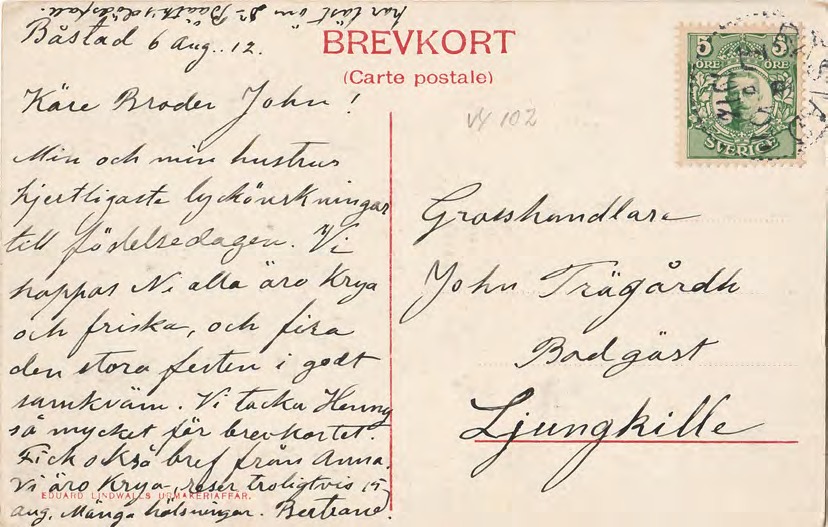 har läst om Dr Baath's dödsfall.
Båstad 6 Aug. 12.
BREVKORT
(Carte postale)
Käre Broder John!
Min och min hustrus
hjertligaste lyckönskningar
till födelsedagen. Vi
hoppas Ni alla äro Krya
och friska, och fira
den stora festen i godt
samkväm. Vi tacka Henny
så mycket för brevkortet.
Fick också bref från Anna.
Vi äro Krya, reser troligtvis 15
aug. Många hälsningar. Bertrand.
EDUARD LINDWALLS URMAKERIAFFÄR.
VY 102
5 5
ÖRE ÖRE
SVERIGE
BÅSTAD
Grosshandlare
John Trägårdh
Badgäst
Ljungskille